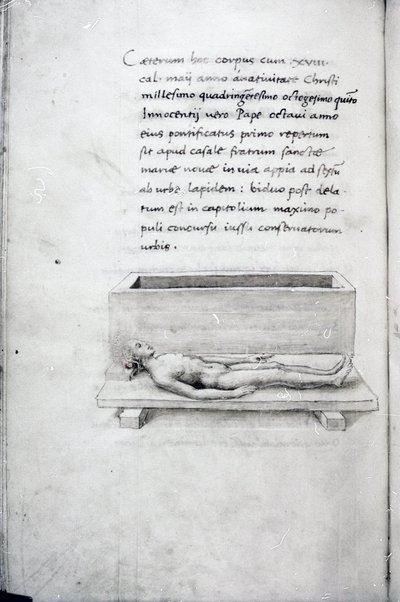 Cæterum hoc corpus cum .XVIII.
cal. maij anno a natiuitate Christi
millesimo quadringẽtesimo octogesimo quĩto
Innocentij uero Pape octaui anno
eius pontificatus primo repertum
sit apud casale fratrum sanctæ
mariæ nouæ in uia appia ad sextũ
ab urbe lapidem : biduo post dela-
tum est in capitolium maximo po-
puli concursu iussu conseruatorum
urbis .